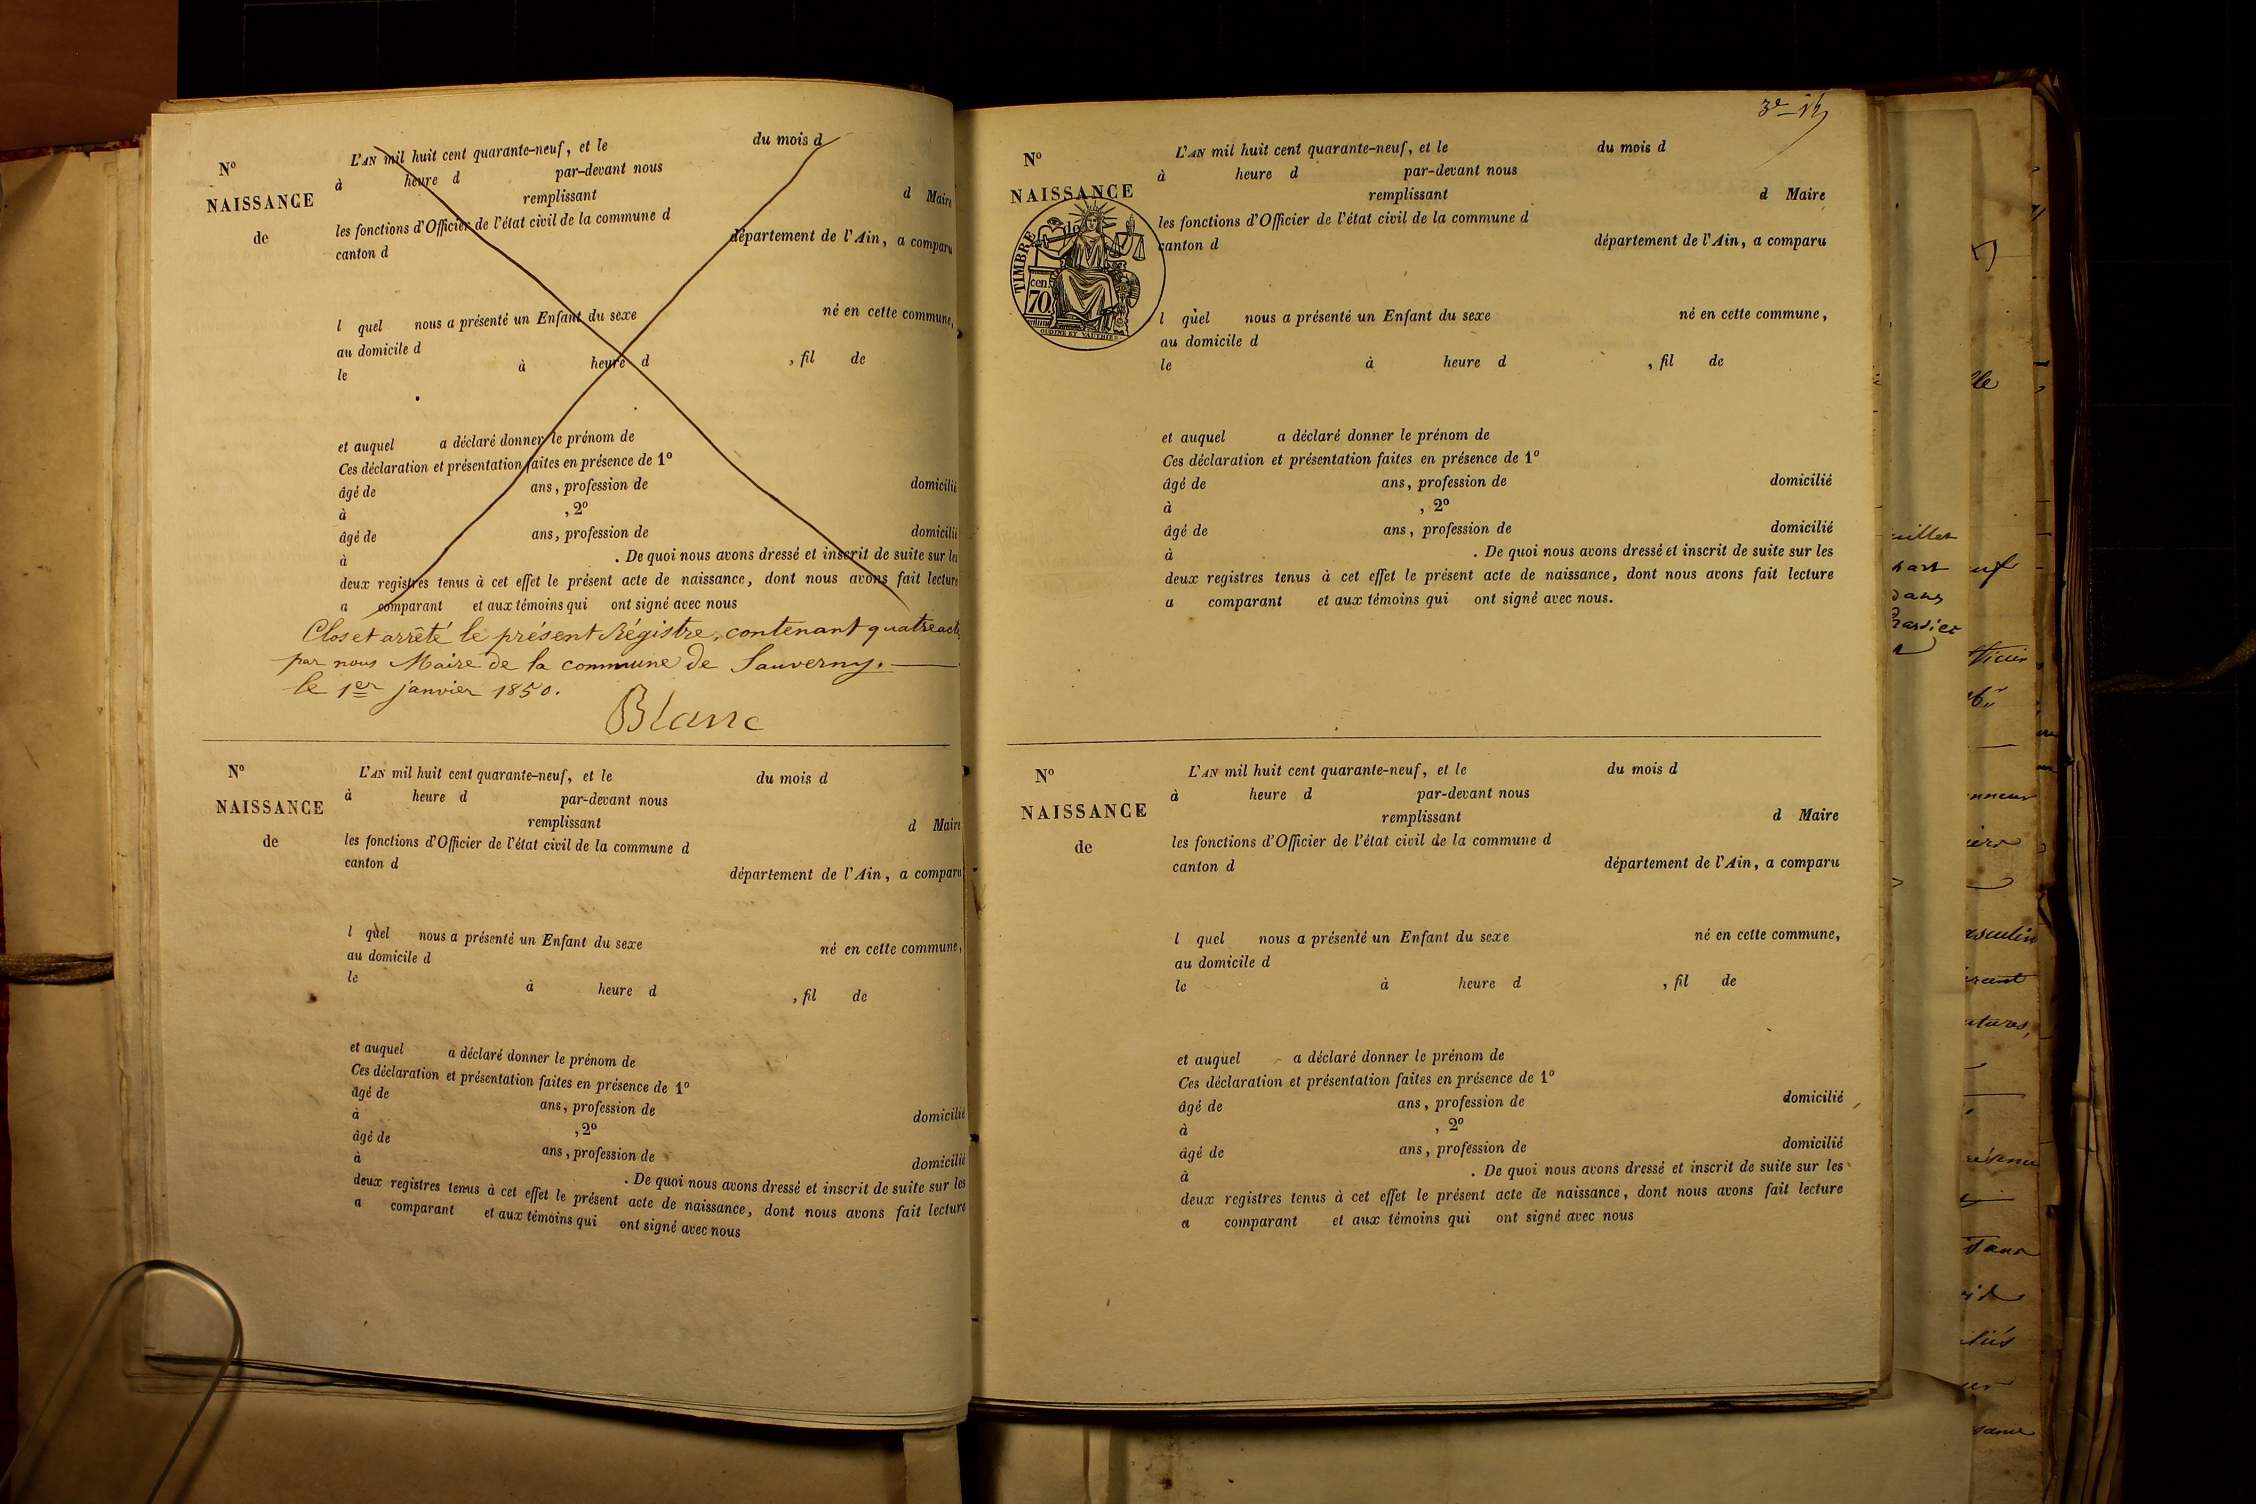 N° L'AN mil huit cent quarante-neuf, et le du mois d
à heure d par-devant nous
NAISSANCE remplissant d Maire
de les fonctions d'Officier de l'état civil de la commune d
canton d département de l'Ain, a comparu
l quel nous a présenté un Enfant du sexe né en cette commune,
au domicile d
le à heure d , fil de
et auquel a déclaré donner le prénom de
Ces déclaration et présentation faites en présence de 1°
âgé de ans, profession de domicilié
à , 2°
âgé de ans, profession de domicilié
à . De quoi nous avons dressé et inscrit de suite sur les
deux registres tenus à cet effet le présent acte de naissance, dont nous avons fait lecture
a comparant et aux témoins qui ont signé avec nous
Clos et arrêté le présent Régistre, contenant quatre act
par nous Maire de la commune de Sauverny.
le 1er janvier 1850.
Blanc
N° L'AN mil huit cent quarante-neuf, et le du mois d
à heure d par-devant nous
NAISSANCE remplissant d Maire
de les fonctions d'Officier de l'état civil de la commune d
canton d département de l'Ain, a comparu
l quel nous a présenté un Enfant du sexe né en cette commune,
au domicile d
le à heure d , fil de
et auquel a déclaré donner le prénom de
Ces déclaration et présentation faites en présence de 1°
âgé de ans, profession de domicilié
à , 2°
âgé de ans, profession de domicilié
à . De quoi nous avons dressé et inscrit de suite sur les
deux registres tenus à cet effet le présent acte de naissance, dont nous avons fait lecture
a comparant et aux témoins qui ont signé avec nous
3e
N° L'AN mil huit cent quarante-neuf, et le du mois d
à heure d par-devant nous
NAISSANCE remplissant d Maire
de les fonctions d'Officier de l'état civil de la commune d
canton d département de l'Ain, a comparu
TIMBRE
cen.
70.
OUDINE ET VAUTHIER
l quel nous a présenté un Enfant du sexe né en cette commune,
au domicile d
le à heure d , fil de
et auquel a déclaré donner le prénom de
Ces déclaration et présentation faites en présence de 1°
âgé de ans, profession de domicilié
à , 2°
âgé de ans, profession de domicilié
à . De quoi nous avons dressé et inscrit de suite sur les
deux registres tenus à cet effet le présent acte de naissance, dont nous avons fait lecture
a comparant et aux témoins qui ont signé avec nous.
N° L'AN mil huit cent quarante-neuf, et le du mois d
à heure d par-devant nous
NAISSANCE remplissant d Maire
de les fonctions d'Officier de l'état civil de la commune d
canton d département de l'Ain, a comparu
l quel nous a présenté un Enfant du sexe né en cette commune,
au domicile d
le à heure d , fil de
et auquel a déclaré donner le prénom de
Ces déclaration et présentation faites en présence de 1°
âgé de ans, profession de domicilié
à , 2°
âgé de ans, profession de domicilié
à . De quoi nous avons dressé et inscrit de suite sur les
deux registres tenus à cet effet le présent acte de naissance, dont nous avons fait lecture
a comparant et aux témoins qui ont signé avec nous